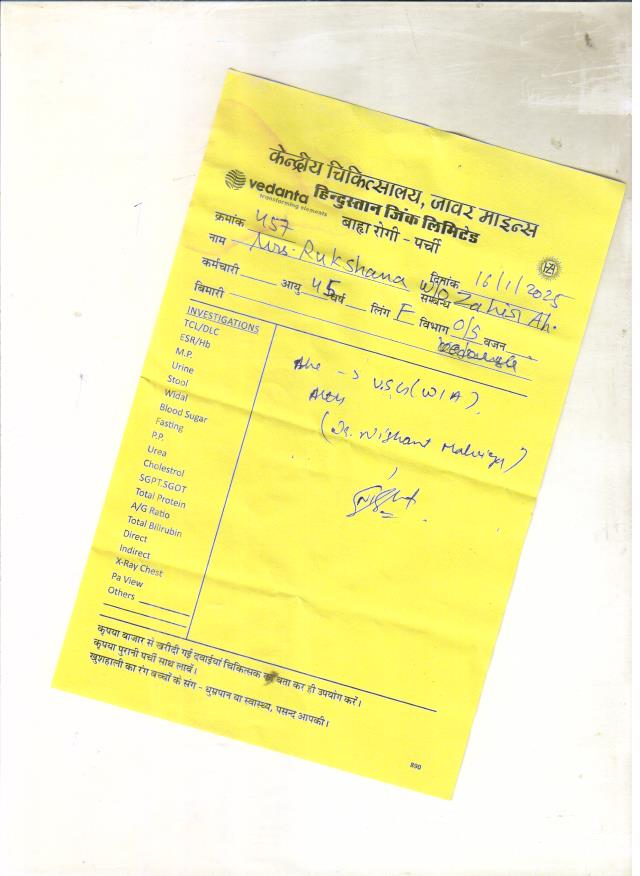 केन्द्रीय चिकित्सालय, जावर माइन्स
vedanta हिन्दुस्तान जिंक लिमिटेड
transforming elements
बाह्य रोगी - पर्ची
क्रमांक 457 दिनांक 16/1/2025
नाम Mrs. Rukshana W/O Zahir Ah.
कर्मचारी आयु 45 वर्ष लिंग F सम्बन्ध
बिमारी विभाग O/S वजन
INVESTIGATIONS
TCL/DLC
ESR/Hb
M.P.
Urine
Stool
Widal
Blood Sugar
Fasting
P.P.
Urea
Cholestrol
SGPT.SGOT
Total Protein
A/G Ratio
Total Bilirubin
Direct
Indirect
X-Ray Chest
Pa View
Others
Adv -> U.S.G (W/A).
(Dr. Nishant Malviya)
कृपया बाजार से खरीदी गई दवाईयां चिकित्सक को बता कर ही उपयोग करें।
कृपया पुरानी पर्ची साथ लावें।
खुशहाली का रंग बच्चों के संग - धुम्रपान या स्वास्थ्य, पसन्द आपकी।
890